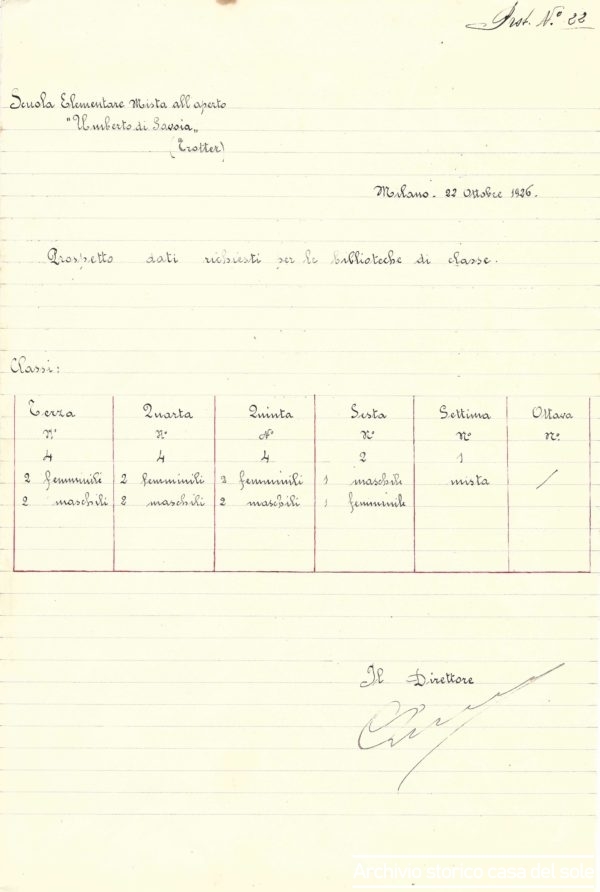 Prot. N.º 22
Scuola Elementare Mista all'aperto
"Umberto di Savoia"
(Trotter)
Milano. 22 Ottobre 1926.
Prospetto dati richiesti per le biblioteche di classe.
Classi:
Terza Quarta Quinta Sesta Settima Ottava
Nº Nº Nº Nº Nº Nº
4 4 4 2 1
2 femminili 2 femminili 2 femminili 1 maschili mista /
2 maschili 2 maschili 2 maschili 1 femminile
Il Direttore
Archivio storico casa del sole